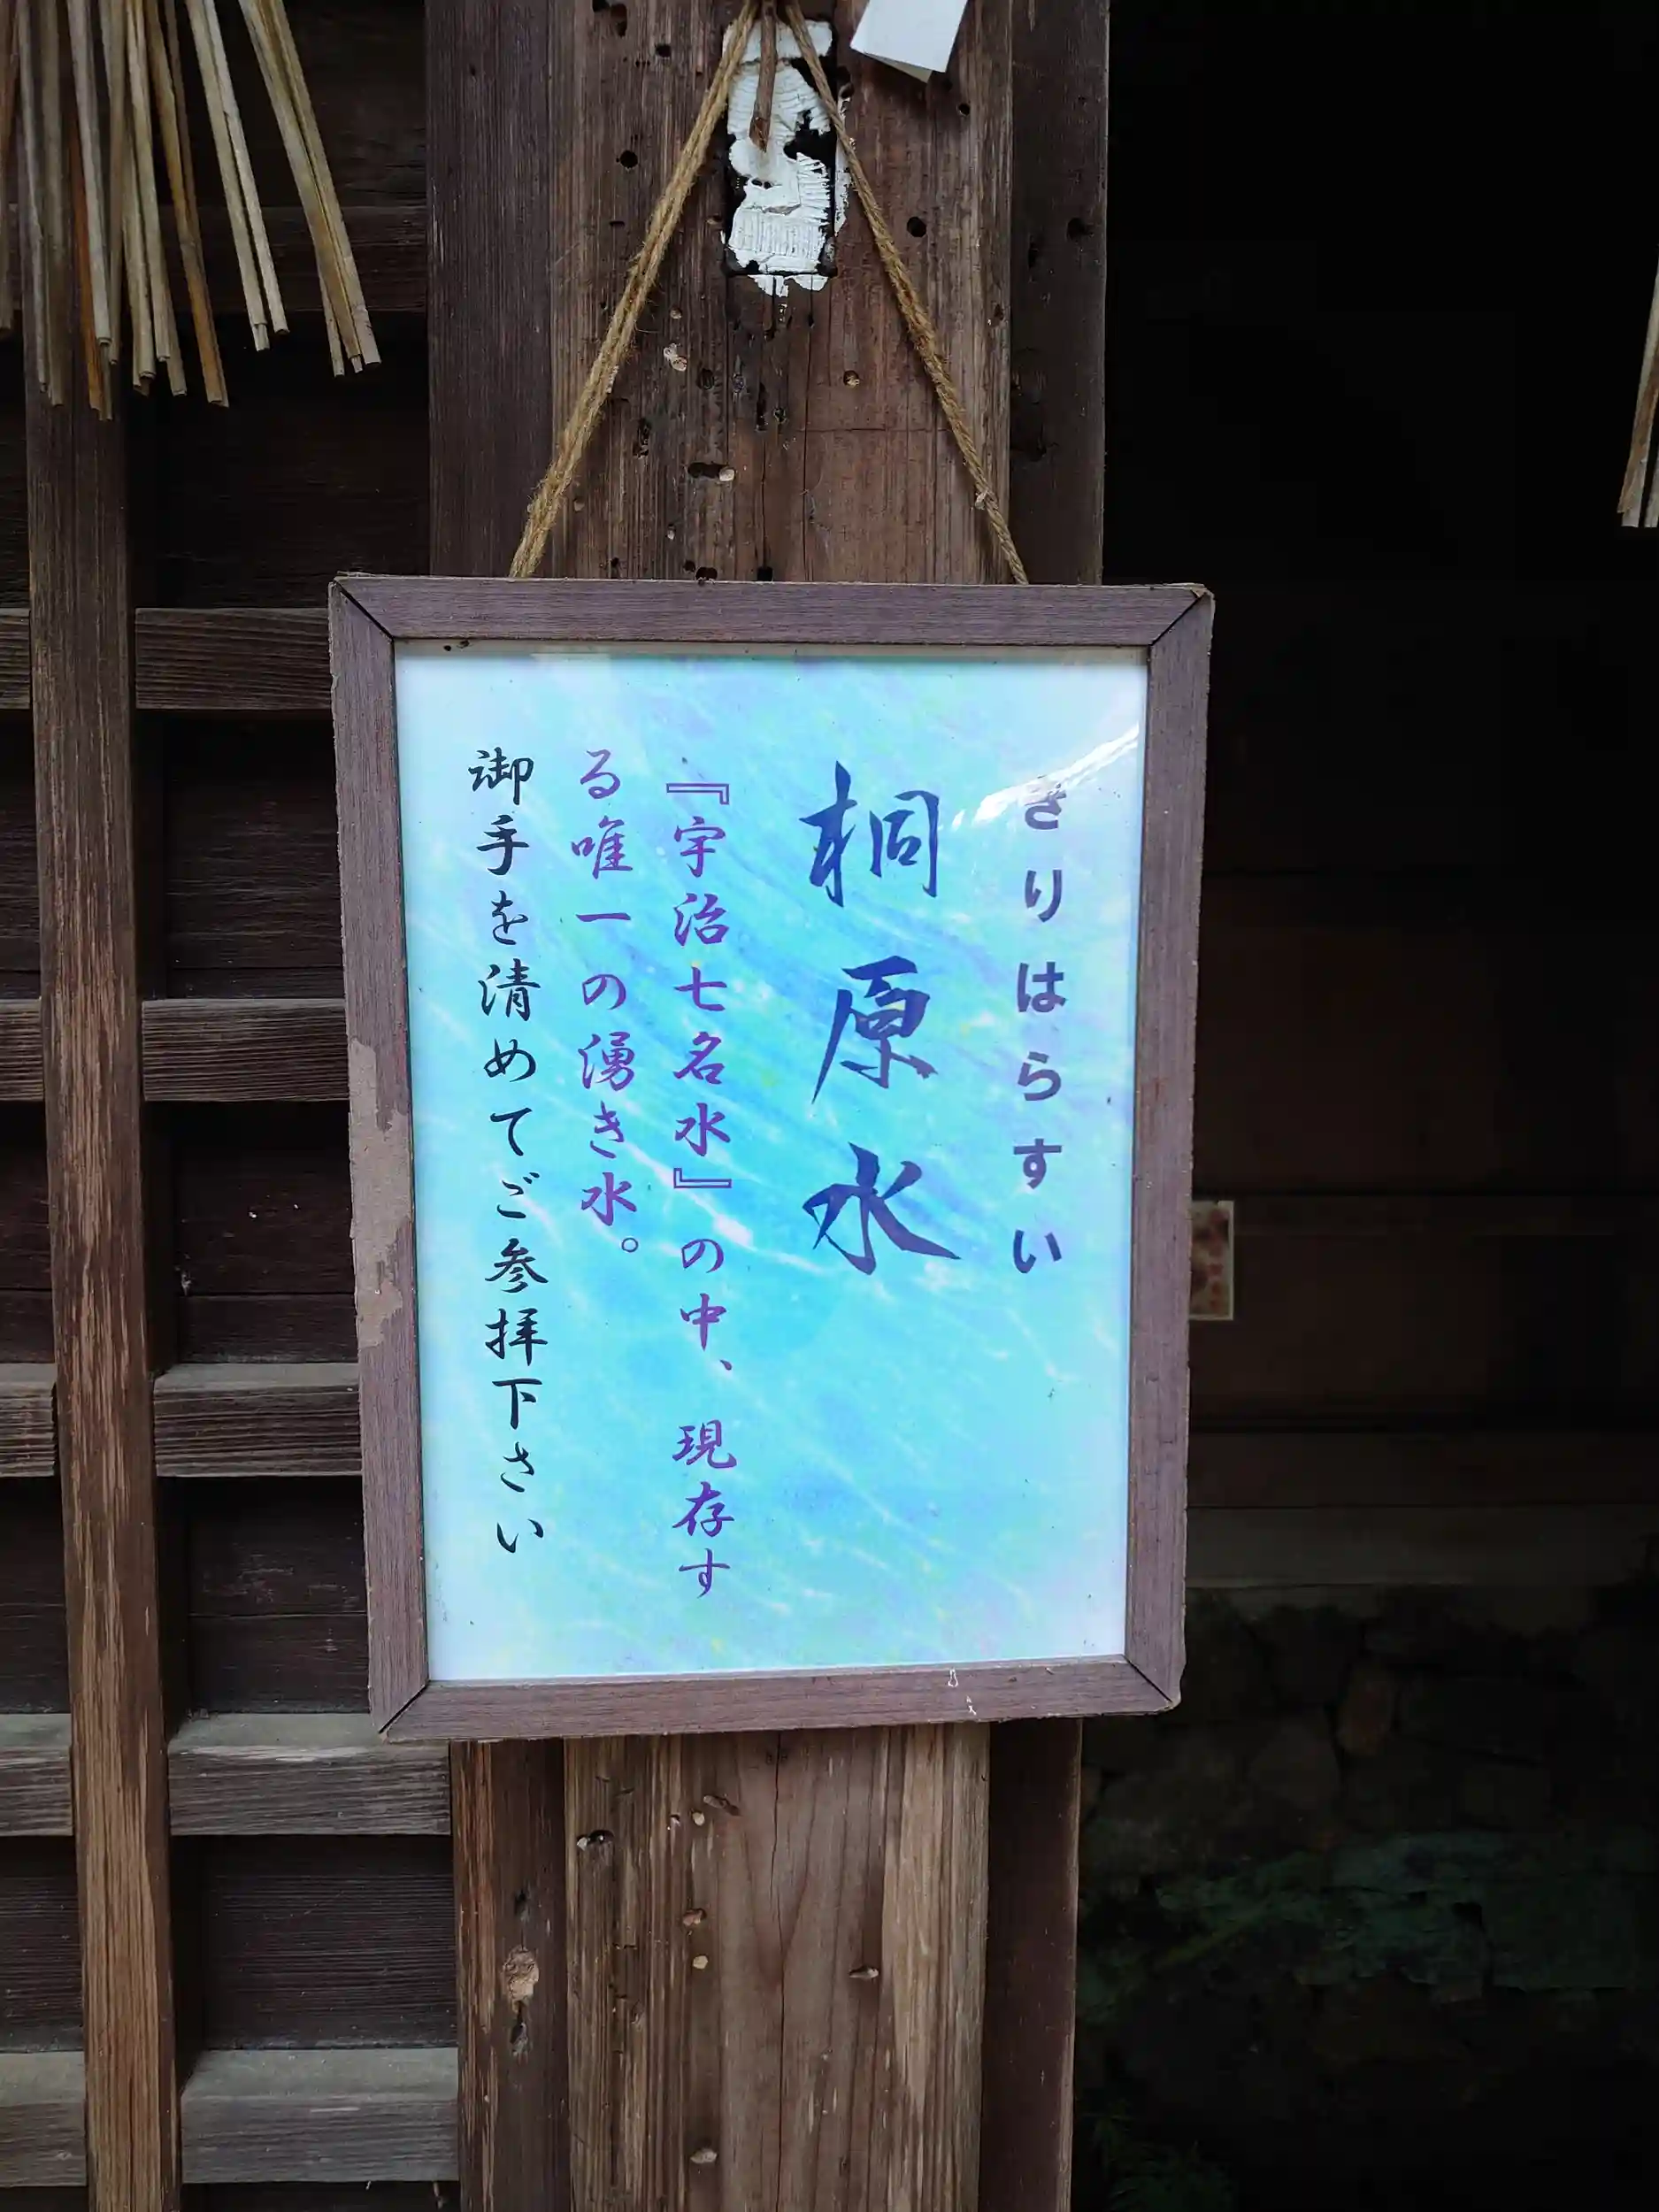 きりはらすい
桐原水
『宇治七名水』の中、現存す
る唯一の湧き水。
御手を清めてご参拝下さい